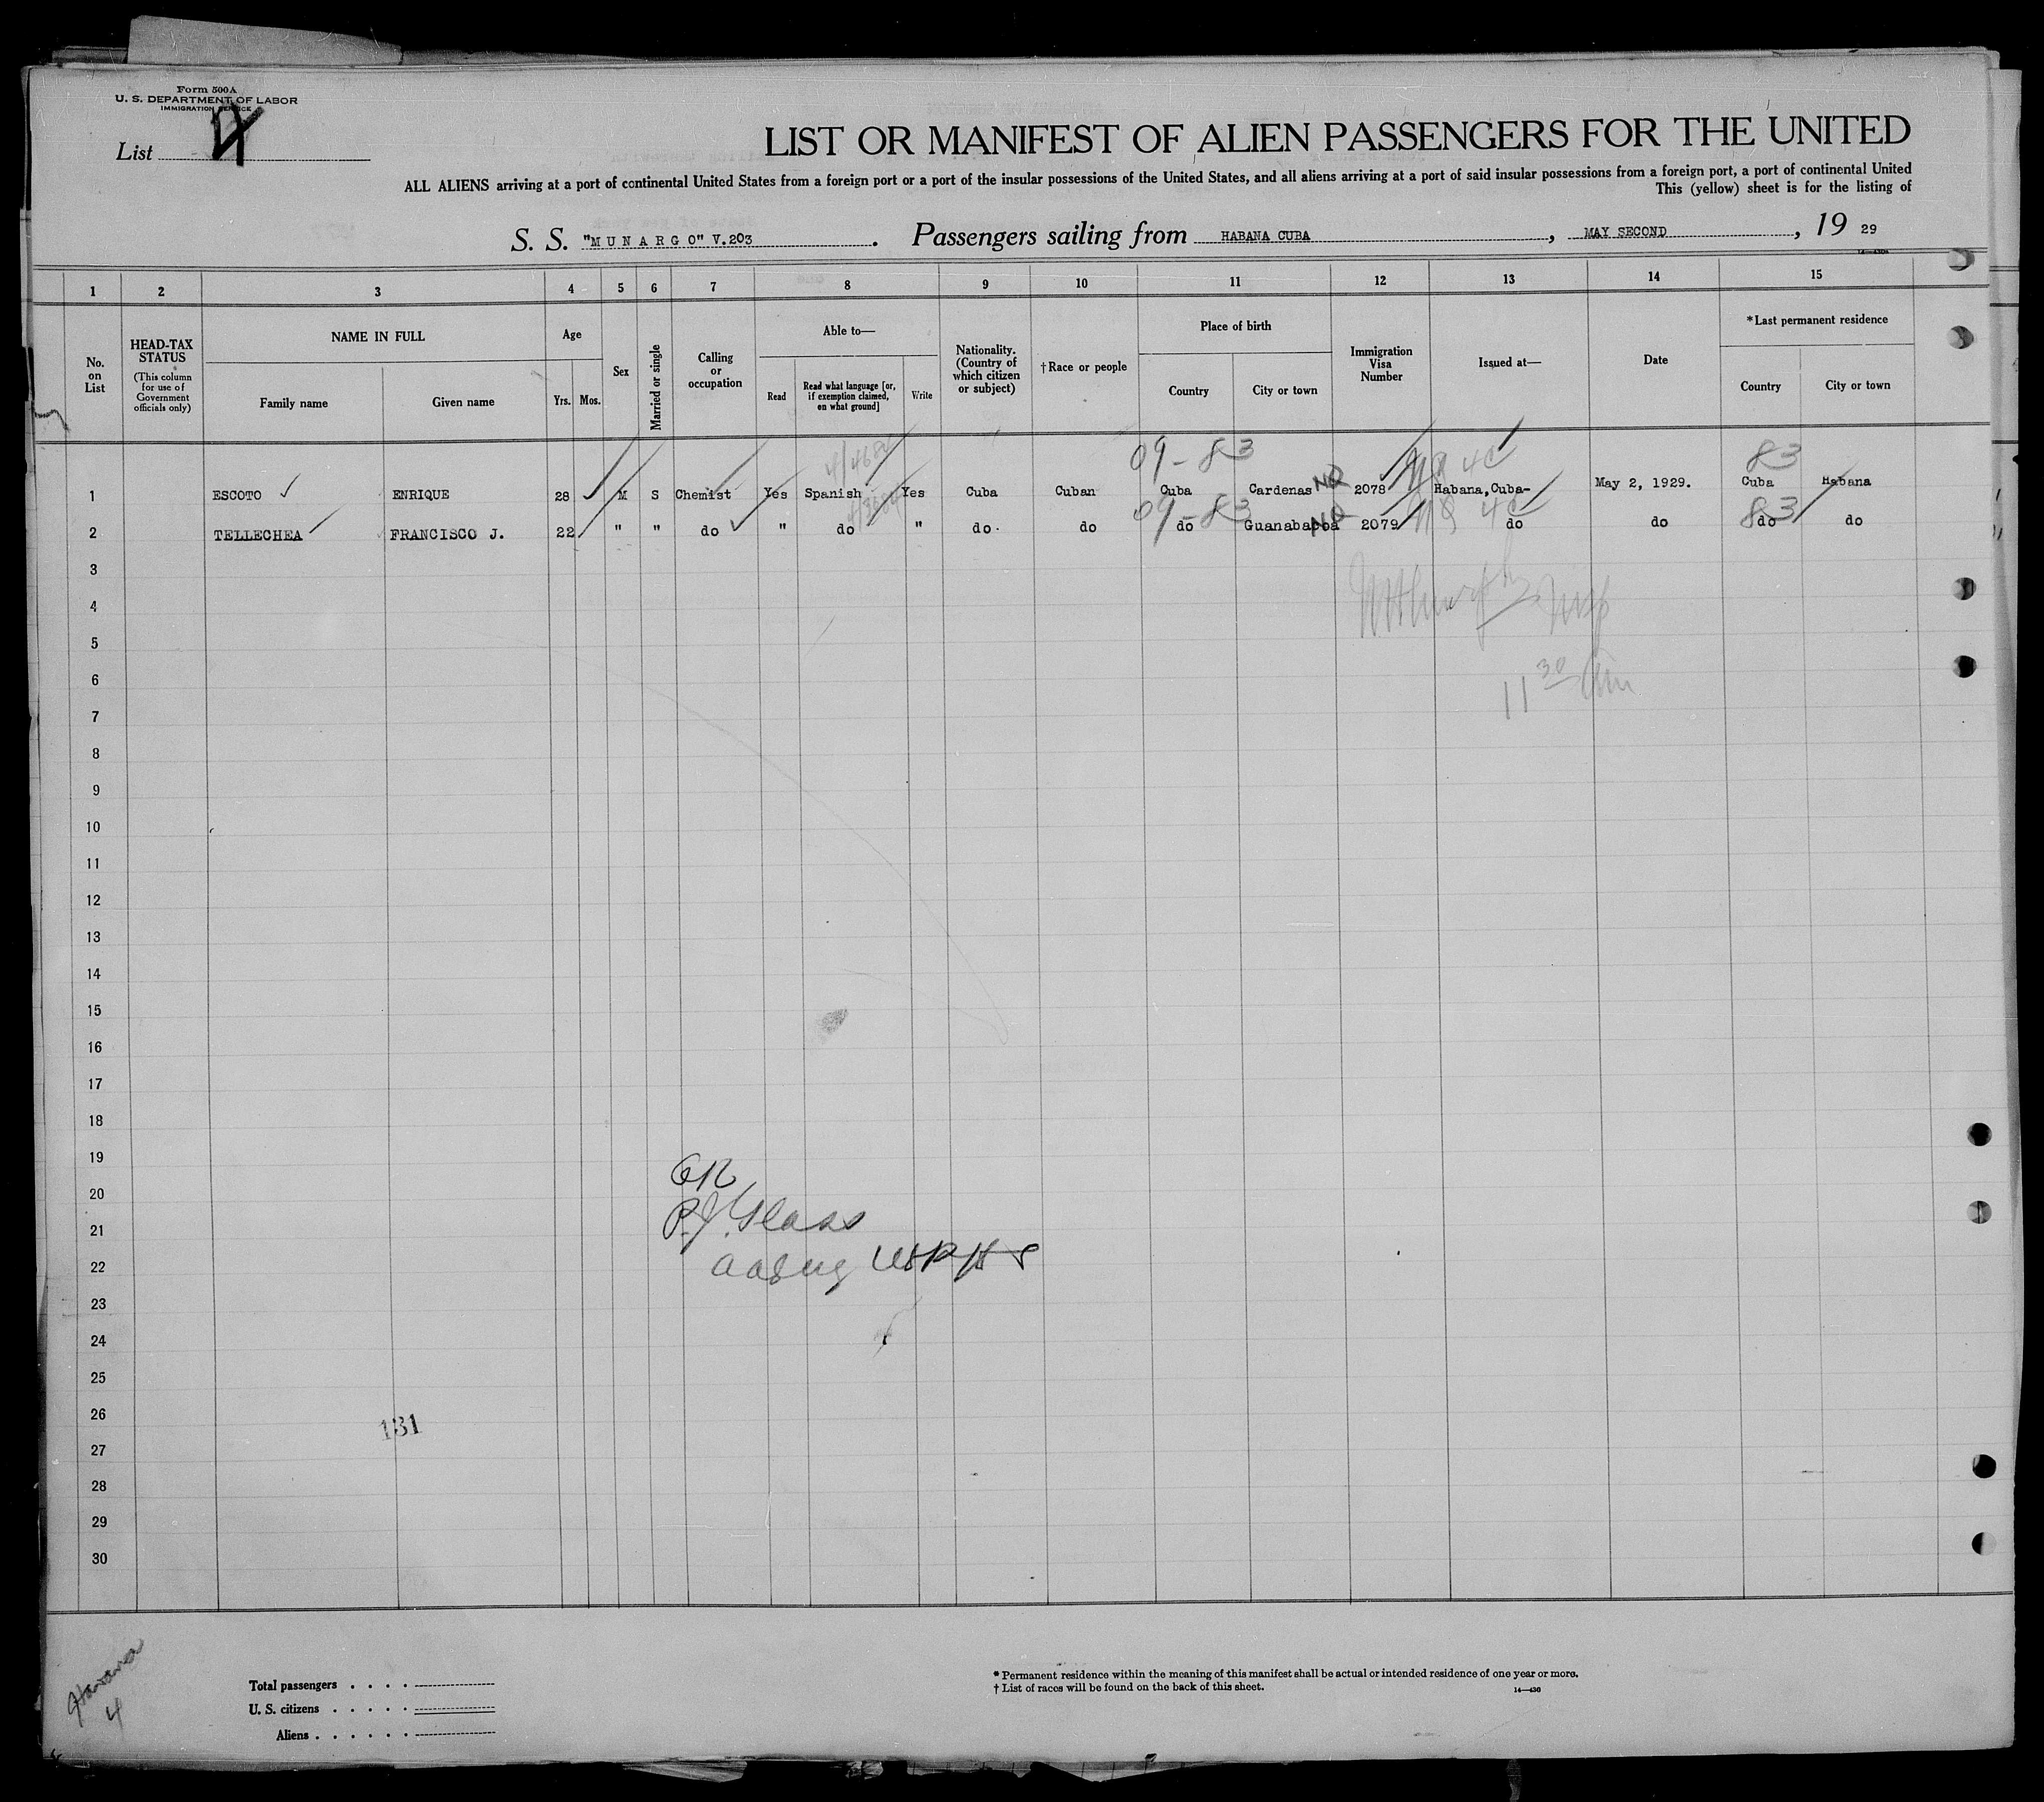 Form 500A
U. S. DEPARTMENT OF LABOR
IMMIGRATION SERVICE
List
LIST OR MANIFEST OF ALIEN PASSENGERS FOR THE UNITED
ALL ALIENS arriving at a port of continental United States from a foreign port or a port of the insular possessions of the United States, and all aliens arriving at a port of said insular possessions from a foreign port, a port of continental United
This (yellow) sheet is for the listing of
S. S. "MUNARGO" V.203. Passengers sailing from HABANA CUBA, MAY SECOND, 19 29
1 2 3 4 5 6 7 8 9 10 11 12 13 14 15
No. on List
HEAD-TAX STATUS (This column for use of Government officials only)
NAME IN FULL
Family name
Given name
Age
Yrs. Mos.
Sex
Married or single
Calling or occupation
Able to—
Read
Read what language [or, if exemption claimed, on what ground]
Write
Nationality. (Country of which citizen or subject)
†Race or people
Place of birth
Country
City or town
Immigration Visa Number
Issued at—
Date
*Last permanent residence
Country
City or town
09-83 4C 83
1 ESCOTO ENRIQUE 28 M S Chemist Yes Spanish Yes Cuba Cuban Cuba Cardenas NQ 2078 Habana,Cuba- May 2, 1929. Cuba Habana
09-83 NQ 4C 83
2 TELLECHEA FRANCISCO J. 22 " " do " do " do. do do Guanabacoa 2079 do do do do
3
4
5
6
11 30 am
7
8
9
10
11
12
13
14
15
16
17
18
19
OK
20
P.J. Glass
21
22
USPHS
23
24
25
26
131
27
28
29
30
Havana
4
Total passengers . . . .
U. S. citizens . . . . .
Aliens . . . . . .
* Permanent residence within the meaning of this manifest shall be actual or intended residence of one year or more.
† List of races will be found on the back of this sheet.
14—436